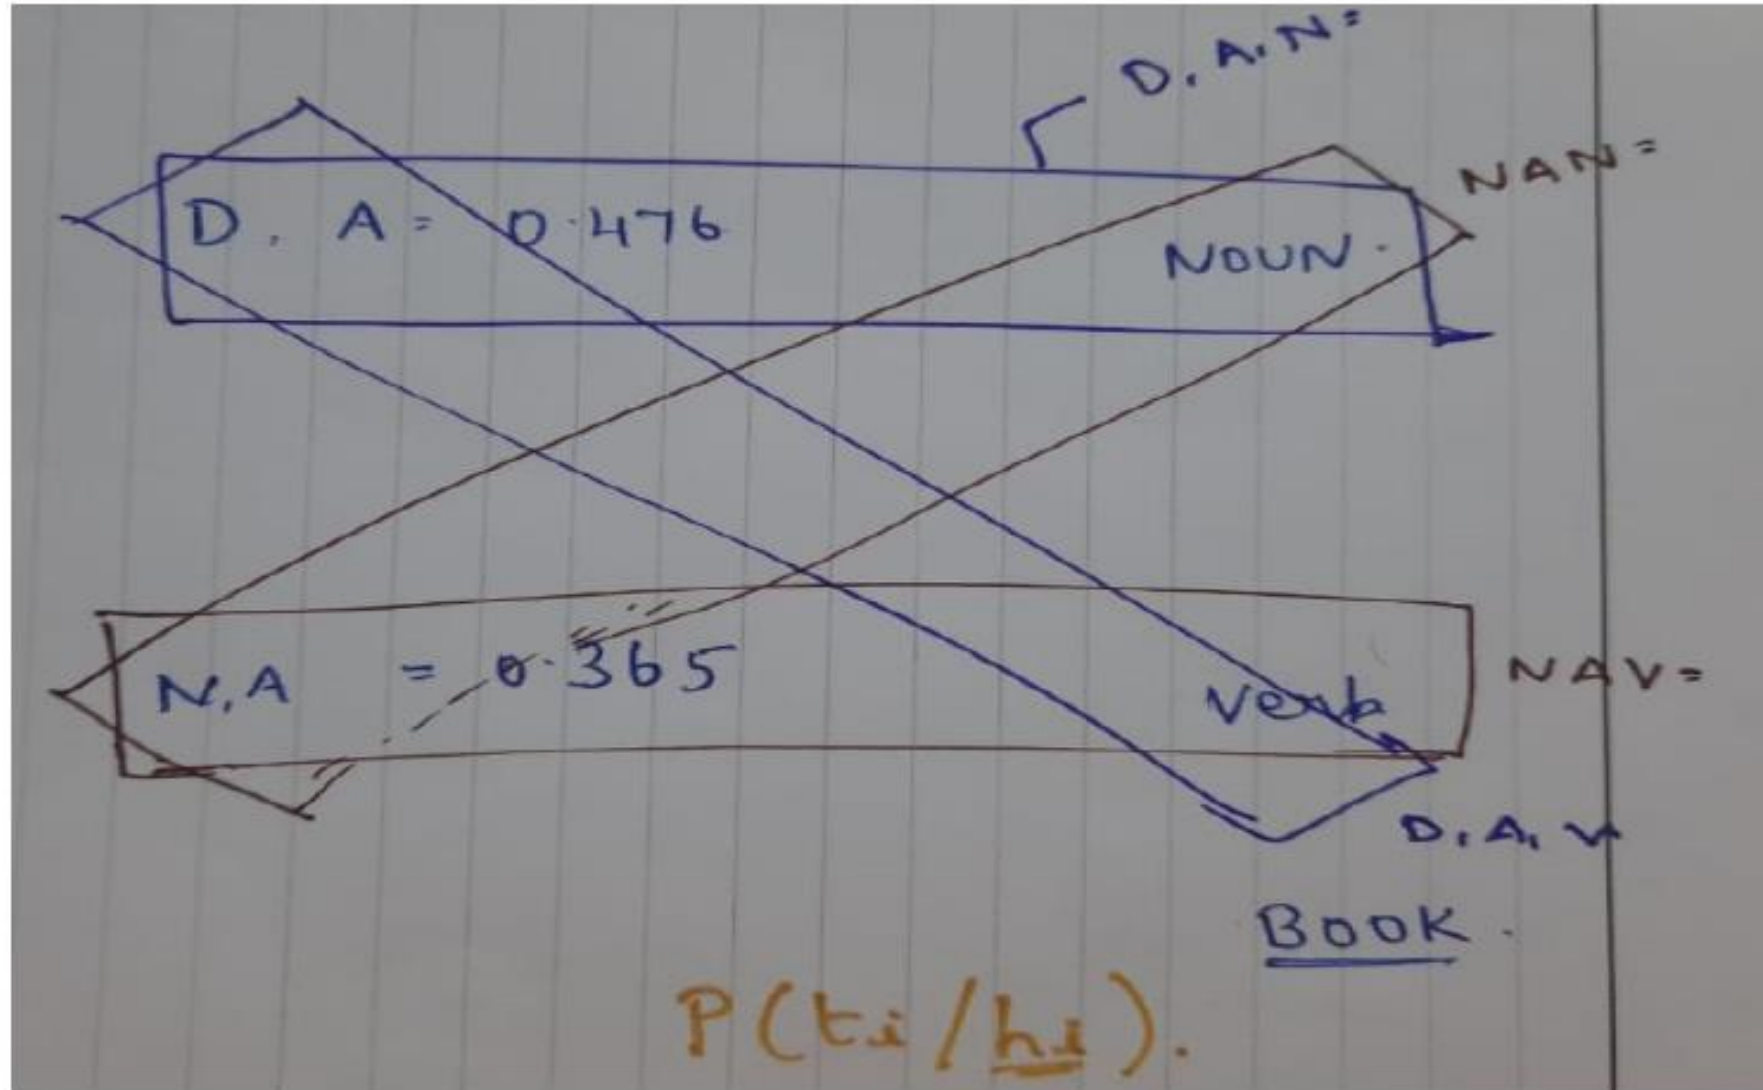 D.A.N=
NAN=
D. A = 0.476
NOUN.
N.A = 0.365
Verb
NAV=
D.A.V
BOOK.
P(ti/hi).